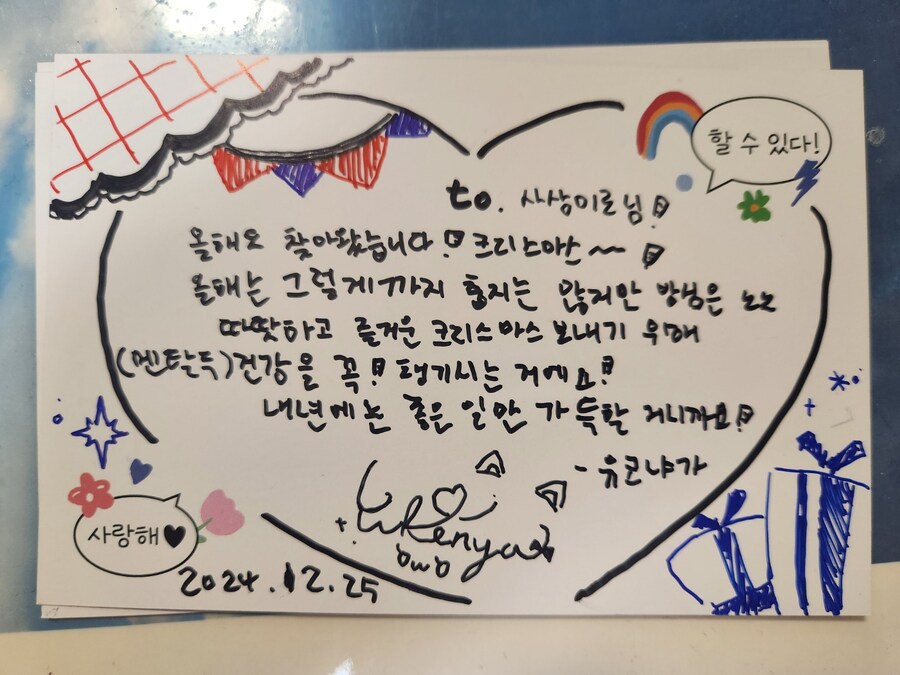 할 수 있다!
to. 사상미로님!
올해도 찾아왔습니다! 크리스마스~~!
올해는 그렇게까지 춥지는 않지만 방심은 노노
따뜻하고 즐거운 크리스마스 보내기 위해
(멘탈특)건강을 꼭! 챙기시는 거예요!
내년에는 좋은 일만 가득할 거니까요!
-유코냐가
사랑해
2024.12.25